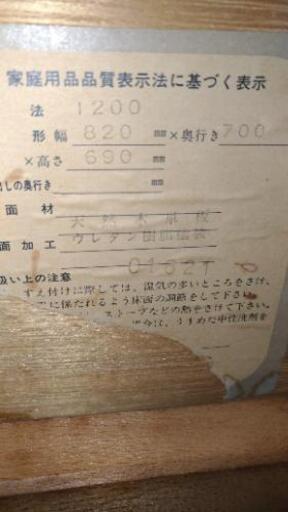 家庭用品品質表示法に基づく表示
法 1200
形 幅 820 mm ×奥行き 700
×高さ 690 mm
出しの奥行き mm
面材 天然木単板
面加工 ウレタン樹脂塗装
0162T
扱い上の注意
すえ付けに際しては、湿気の多いところをさけ、
に保たれるよう床面の調節をして下さい。
ストーブなどの熱をさけて下さい。
は、うすめた中性洗剤を